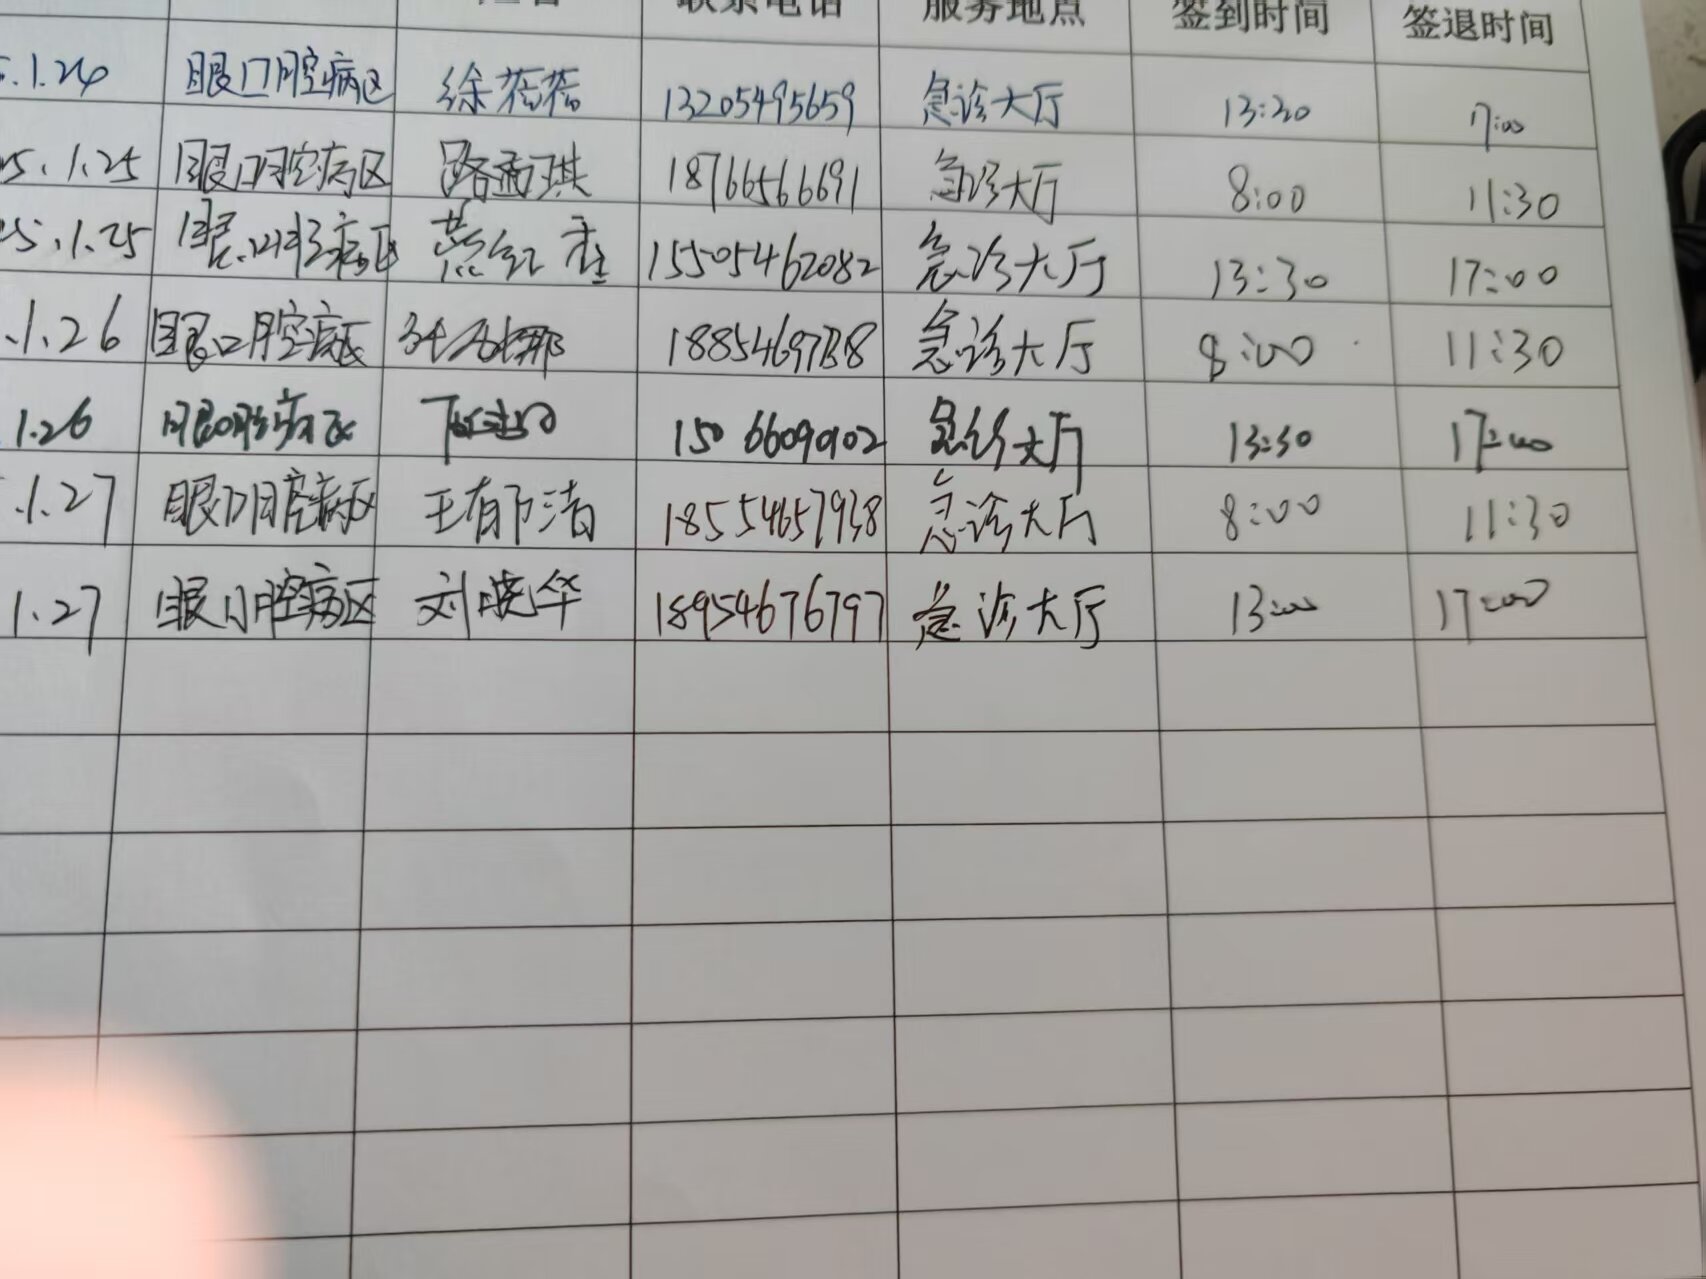 联系电话 服务地点 签到时间 签退时间
.1.24 眼口腔病区 徐蓓蓓 13205495659 急诊大厅 13:30 17:00
25.1.25 眼口腔病区 路孟琪 18766566691 急诊大厅 8:00 11:30
25.1.25 眼口腔病区 15505462082 急诊大厅 13:30 17:00
.1.26 眼口腔病区 急诊大厅 8:00 11:30
1.26 眼口腔病区 15066090102 急诊大厅 13:30 17:00
.1.27 眼口腔病区 王有清 18554657938 急诊大厅 8:00 11:30
1.27 眼口腔病区 刘晓华 18954676797 急诊大厅 13:00 17:00